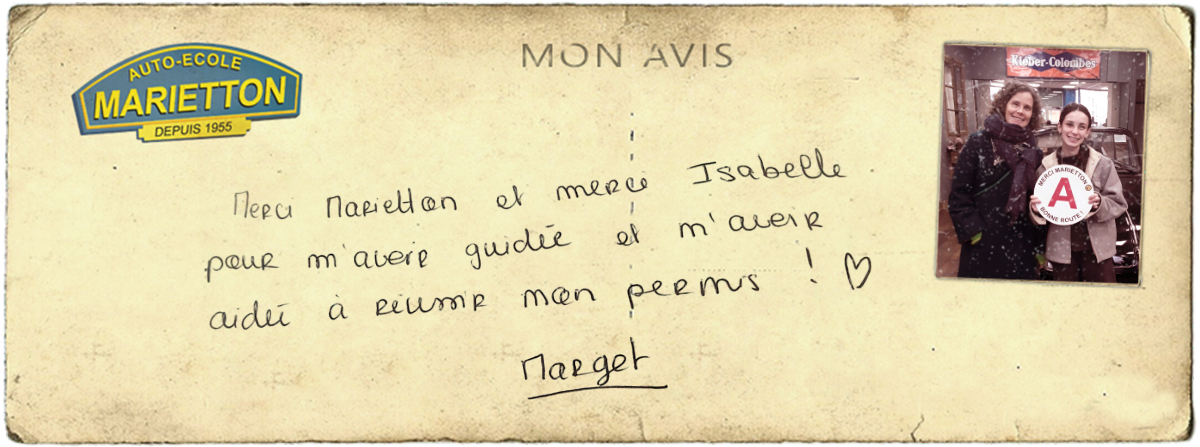 MON AVIS
AUTO-ECOLE
MARIETTON
DEPUIS 1955
Kleber-Colombes
MERCI MARIETTON
A
BONNE ROUTE !
Merci Marietton et merci Isabelle
pour m'avoir guidée et m'avoir
aidée à réussir mon permis ! ♡
Margot